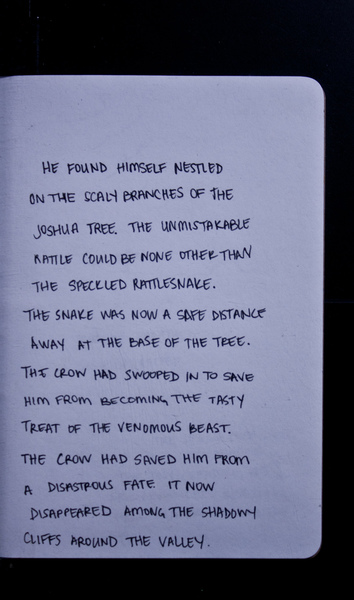 HE FOUND HIMSELF NESTLED
ON THE SCALY BRANCHES OF THE
JOSHUA TREE. THE UNMISTAKABLE
RATTLE COULD BE NONE OTHER THAN
THE SPECKLED RATTLESNAKE.
THE SNAKE WAS NOW A SAFE DISTANCE
AWAY AT THE BASE OF THE TREE.
THE CROW HAD SWOOPED IN TO SAVE
HIM FROM BECOMING THE TASTY
TREAT OF THE VENOMOUS BEAST.
THE CROW HAD SAVED HIM FROM
A DISASTROUS FATE IT NOW
DISAPPEARED AMONG THE SHADOWY
CLIFFS AROUND THE VALLEY.